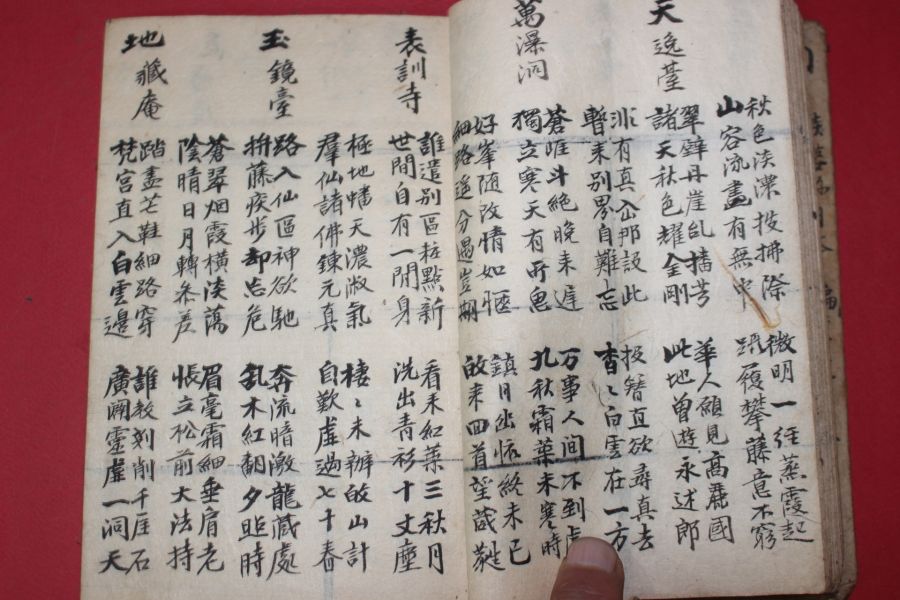 秋色淡濃投拂除
山容流畫有無中
微明一徑蒸霞起
躡履攀藤意不窮
天逸臺
翠壁丹崖亂插芳
諸天秋色耀金剛
華人願見高麗國
此地曾遊永述郎
非有真仙那設此
暫來別界自難忘
投簪直欲尋真去
杳〻白雲在一方
萬瀑洞
蒼崖斗絕晚來遲
獨立寒天有所思
万事人間不到處
九秋霜葉未寒時
好峯隨改情如愜
細路逶分遇豈期
鎮日幽懷終未已
皈來四首望葳蕤
表訓寺
誰遣別區粧點新
世間自有一閒身
看來紅葉三秋月
洗出青衫十丈塵
極地蟠天濃淑氣
羣仙諸佛鍊元真
棲〻未辦皈山計
自歎虛過七十春
玉鏡臺
路入仙區神欲馳
拚藤疾步却忘危
奔流暗激龍藏處
亂木紅翻夕照時
蒼翠烟霞橫淡蕩
陰晴日月轉參差
眉毫霜細垂肩老
悵立松前大法持
地藏庵
踏盡芒鞋細路穿
梵宮直入白雲邊
誰教刻削千崖石
廣闢靈虛一洞天